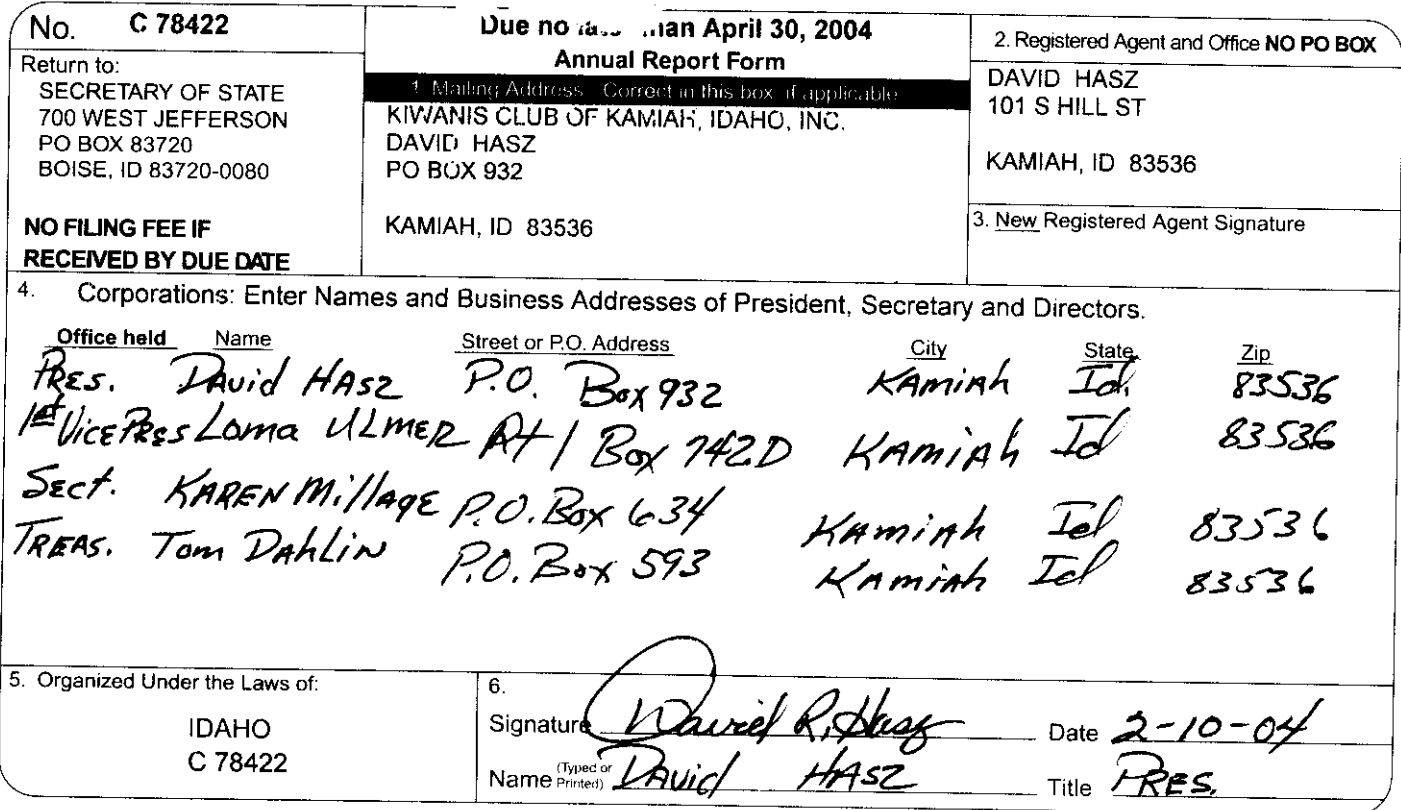 No. C 78422
Return to:
SECRETARY OF STATE
700 WEST JEFFERSON
PO BOX 83720
BOISE, ID 83720-0080
NO FILING FEE IF
RECEIVED BY DUE DATE
Due no April 30, 2004
Annual Report Form
1. Mailing Address Correct in this box if applicable
KIWANIS CLUB OF KAMIAH, IDAHO, INC.
DAVID HASZ
PO BOX 932
KAMIAH, ID 83536
2. Registered Agent and Office NO PO BOX
DAVID HASZ
101 S HILL ST
KAMIAH, ID 83536
3. New Registered Agent Signature
4. Corporations: Enter Names and Business Addresses of President, Secretary and Directors.
Office held Name Street or P.O. Address City State Zip
PRES. DAvid HASZ P.O. Box 932 KAmiAh Id. 83536
1st Vice Pres ULmER Rt 1 Box 742D KAmiAh Id 83536
Sect. KAREN MillAge P.O. Box 634 KAmiAh Id 83536
TREAS. Tom DAhLiN P.O. Box 593 KAmiAh Id 83536
5. Organized Under the Laws of:
IDAHO
C 78422
6.
Signature David R. Hasz Date 2-10-04
Name (Typed or Printed) DAvid HASZ Title PRES.